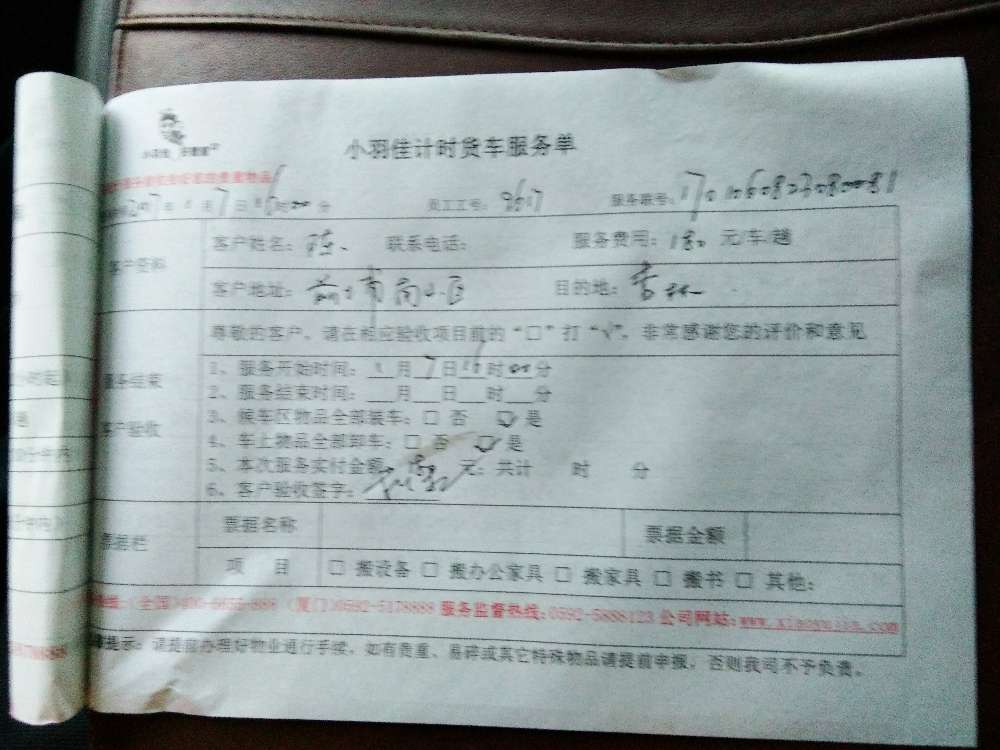 小羽佳计时货车服务单
员工工号：9617 服务联号：
客户资料
客户姓名：陈 联系电话： 服务费用：180 元/车/趟
客户地址：前埔南小区 目的地：
尊敬的客户，请在相应验收项目前的“□”打“√”，非常感谢您的评价和意见
服务结束
客户验收
1、服务开始时间：1月7日16时00分
2、服务结束时间：___月___日___时___分
3、候车区物品全部装车：□ 否 ☑ 是
4、车上物品全部卸车：□ 否 ☑ 是
5、本次服务实付金额：180 元；共计 时 分
6、客户验收签字：
票据栏
票据名称 票据金额
项 目 □ 搬设备 □ 搬办公家具 □ 搬家具 □ 搬书 □ 其他：
（厦门）0592-5178888 服务监督热线：0592-5888123 公司网站：www.xiaoyujia.com
提示：请提前办理好物业通行手续，如有贵重、易碎或其它特殊物品请提前申报，否则我司不予负责。